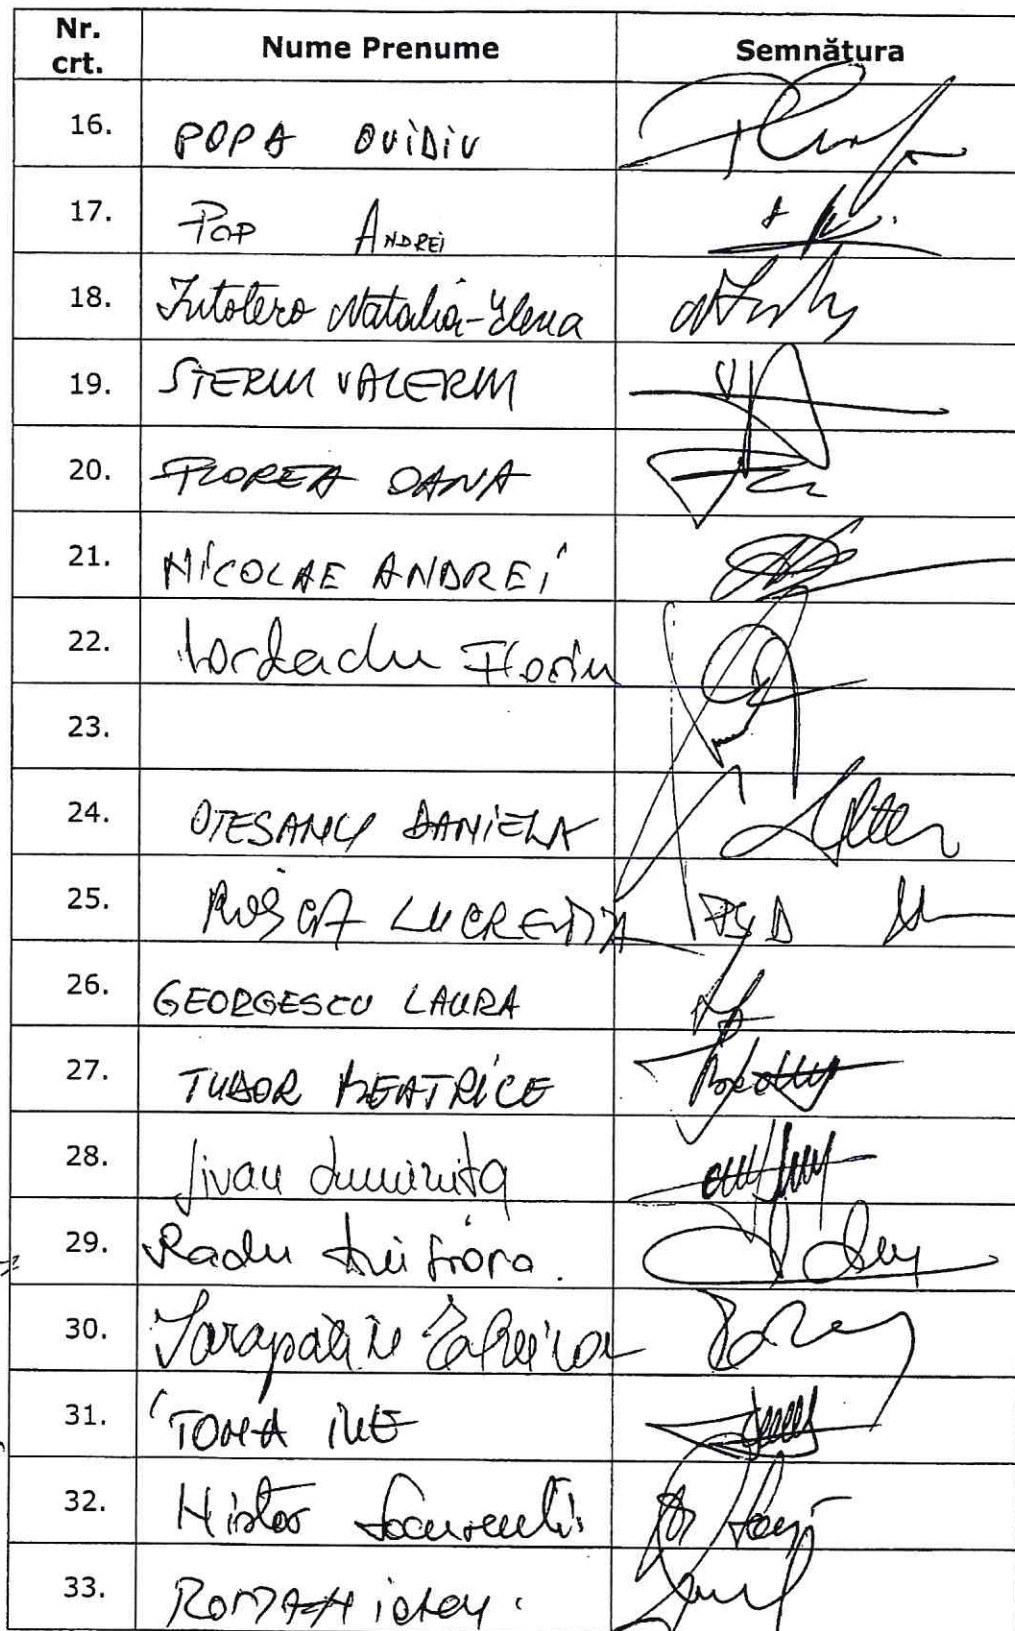 Nr. crt. Nume Prenume Semnătura
16. POPA OVIDIU
17. POP ANDREI
18. Intotero Natalia-Elena
19. STERIU VALERIU
20. FLOREA OANA
21. NICOLAE ANDREI
22. Iordache Florin
23.
24. OTESANU DANIELA
25. ROȘCA LUCREȚIA PSD
26. GEORGESCU LAURA
27. TUDOR BEATRICE
28. Jivan Luminița
29. Radu
30.
31. TOMA ILIE
32. Nistor
33. ROMAN